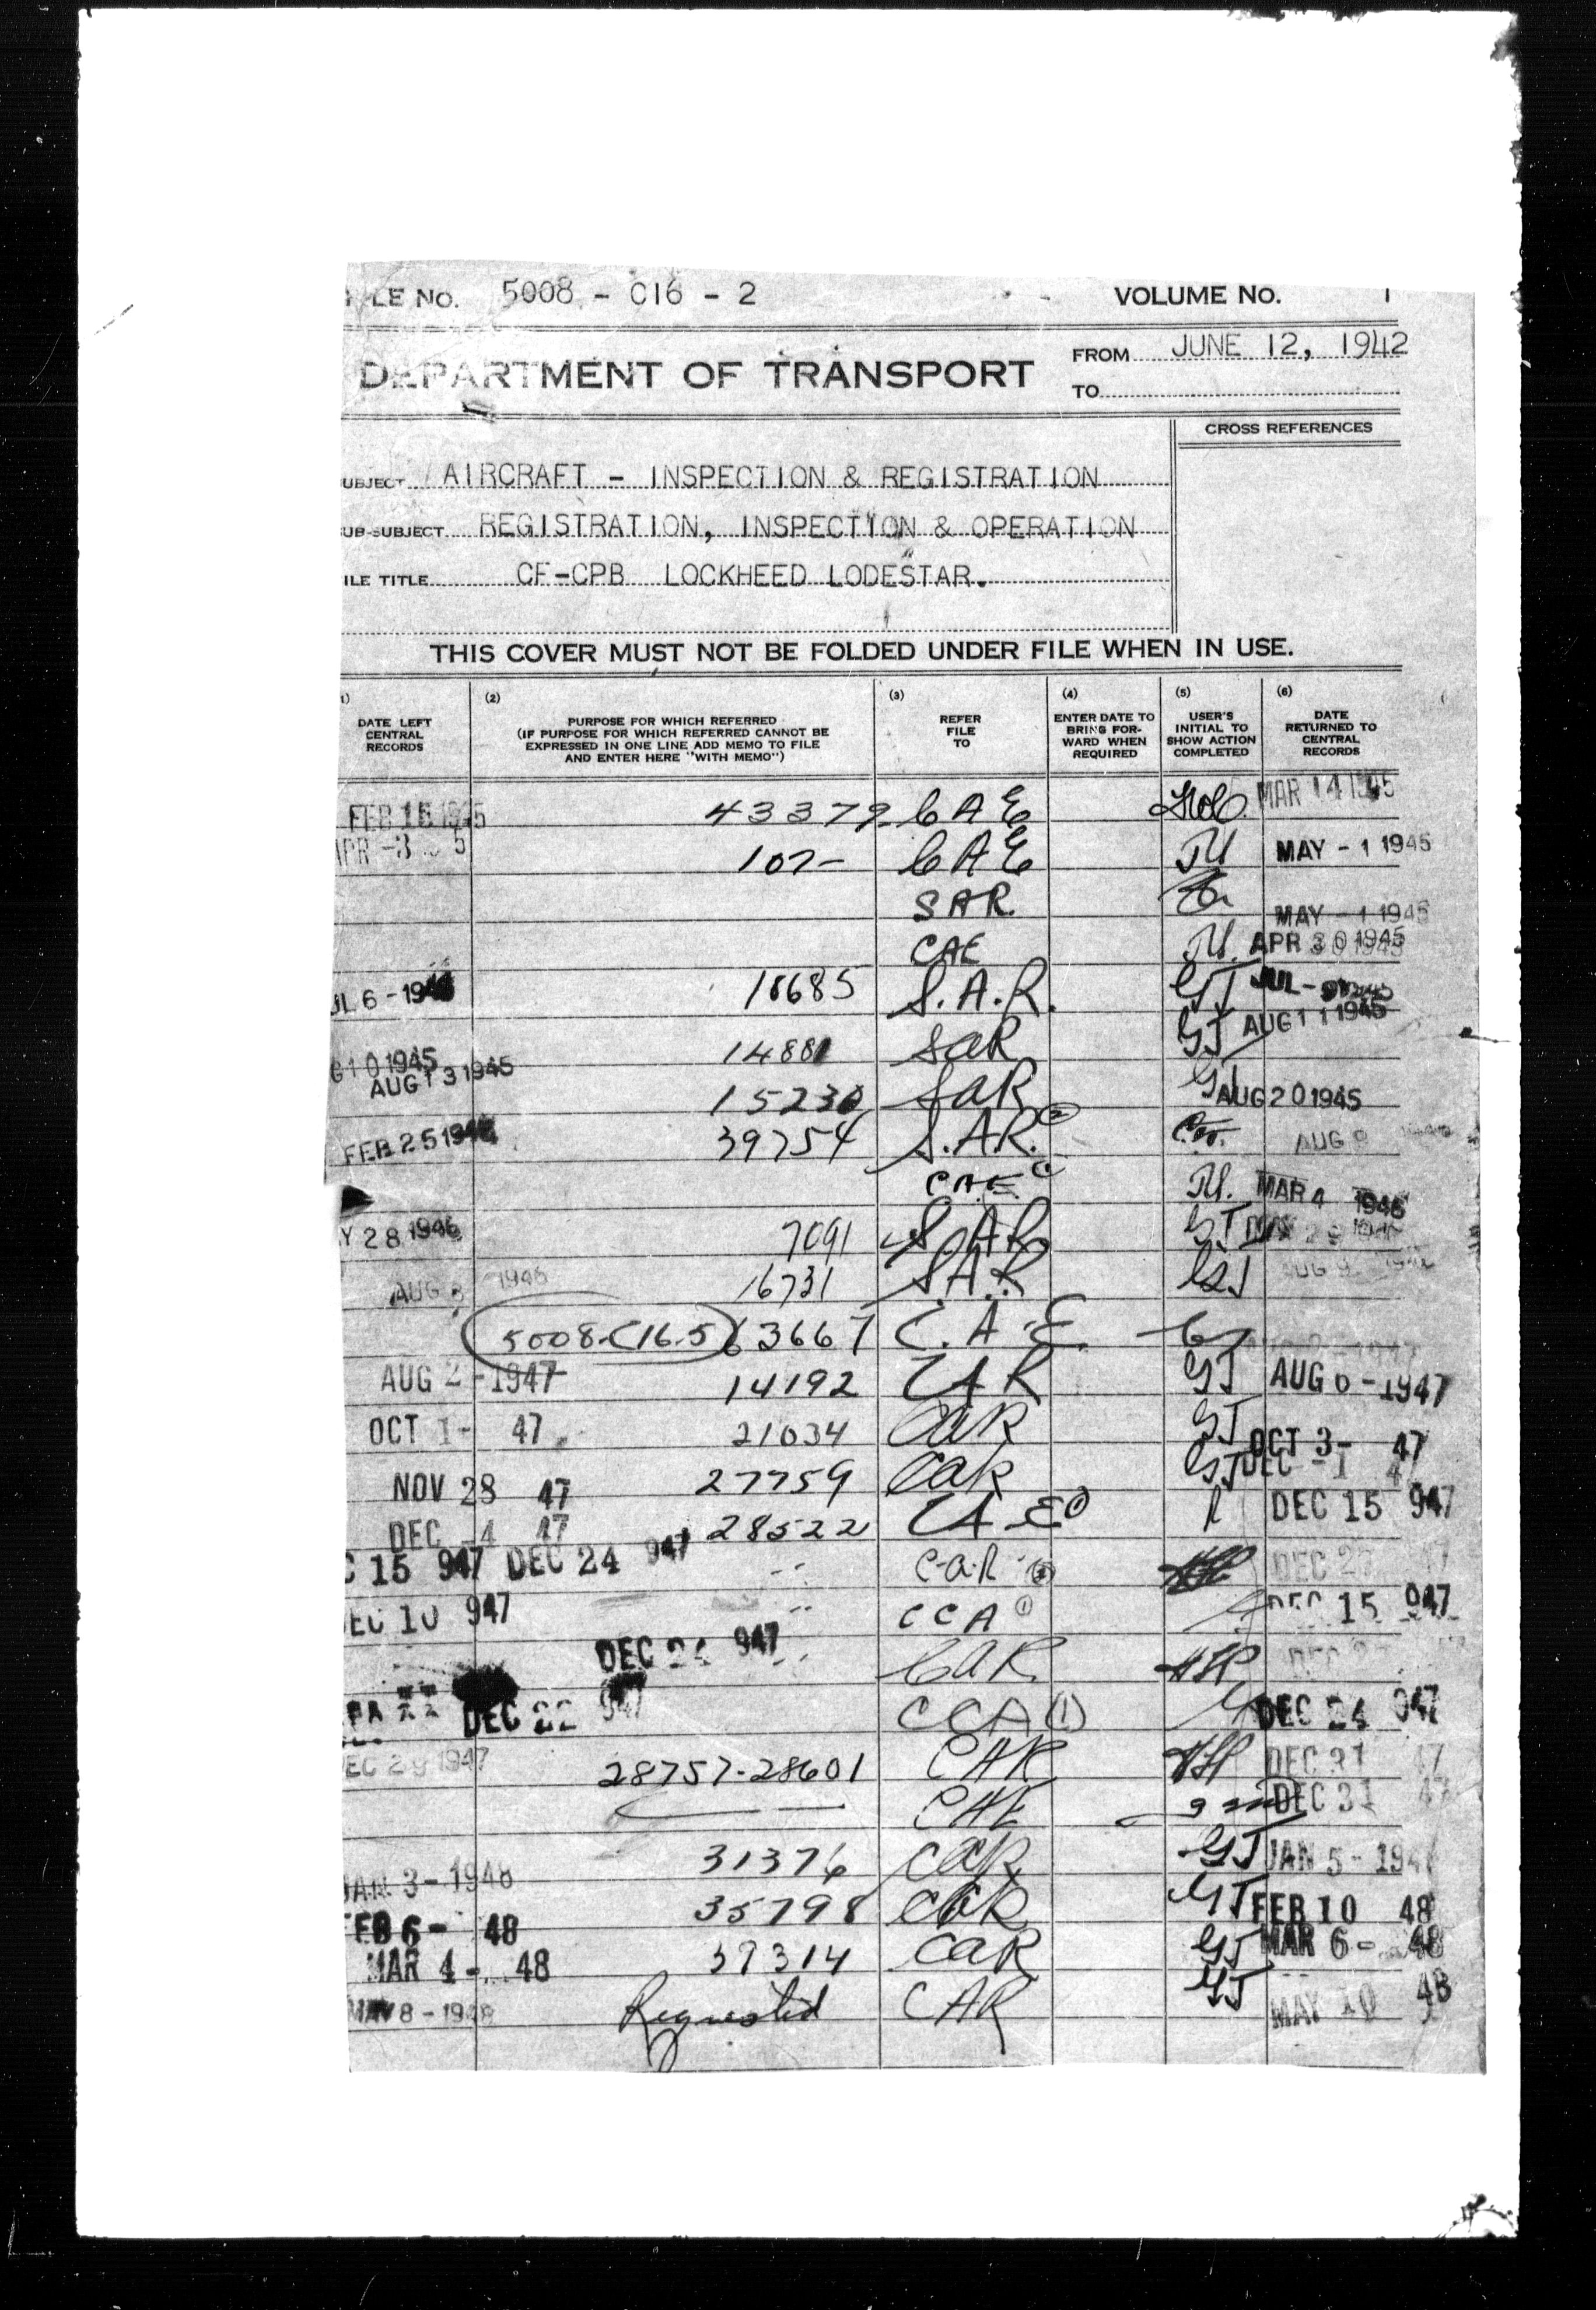 LE NO. 5008 - C16 - 2 VOLUME NO. 1
DEPARTMENT OF TRANSPORT
FROM JUNE 12, 1942
TO
CROSS REFERENCES
UBJECT AIRCRAFT - INSPECTION & REGISTRATION
UB-SUBJECT REGISTRATION, INSPECTION & OPERATION
ILE TITLE CF-CPB LOCKHEED LODESTAR.
THIS COVER MUST NOT BE FOLDED UNDER FILE WHEN IN USE.
(1) DATE LEFT CENTRAL RECORDS
(2) PURPOSE FOR WHICH REFERRED (IF PURPOSE FOR WHICH REFERRED CANNOT BE EXPRESSED IN ONE LINE ADD MEMO TO FILE AND ENTER HERE "WITH MEMO")
(3) REFER FILE TO
(4) ENTER DATE TO BRING FOR-WARD WHEN REQUIRED
(5) USER'S INITIAL TO SHOW ACTION COMPLETED
(6) DATE RETURNED TO CENTRAL RECORDS
43379 CAE MAR 14 1945
APR -3 107- CAE MAY - 1 1945
SAR. MAY - 1 1945
CAE APR 30 1945
UL 6 - 1945 10685 S.A.R. GJ JUL
G 10 1945 14881 SAR GJ AUG 11 1945
AUG 13 1945 15230 SAR GJ AUG 20 1945
FEB 25 1946 39754 S.A.R. (2) AUG 9
CAE (1) MAR 4 1946
Y 28 1946 7091 S.A.R. GJ
AUG 8 1946 16731 S.A.R GJ AUG 9
5008-C16-5 63667 C.A.E.
AUG 2 - 1947 14192 CAR GJ AUG 6 - 1947
OCT 1 - 47 21034 CAR GJ OCT 3 - 47
NOV 28 47 27759 CAR GJ DEC - 1 47
DEC - 4 47 28522 CAE (1) DEC 15 947
C 15 947 DEC 24 947 C.A.R (2)
EC 10 947 CCA (1) DEC 15 947
DEC 24 947 CAR
DEC 22 947 CCA (1) DEC 24 947
EC 29 1947 28757-28601 CAR DEC 31 47
CAE DEC 31 47
JAN 3 - 1948 31376 CAR GJ JAN 5 - 194
FEB 6 - 48 35798 CAR GJ FEB 10 48
MAR 4 - 48 39314 CAR GJ MAR 6 - 48
MAY 8 - 1948 Requested CAR GJ MAY 10 48